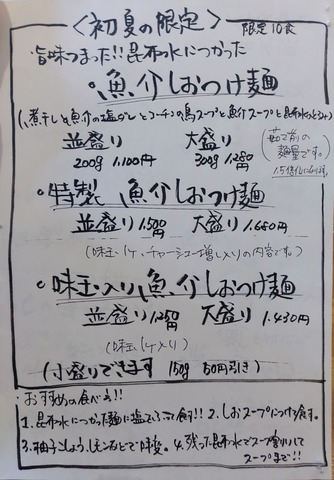 〈初夏の限定〉 限定10食
旨味つまった!!昆布水につかった
・魚介しおつけ麺
(煮干しと魚介の塩ダレとコーチンの鳥スープと魚介スープと昆布水のスープ)
並盛り 大盛り
200g 1,100円 300g 1,280円
(茹で前の
麺量です。
1.5倍位になります。)
・特製 魚介しおつけ麺
並盛り1,500円 大盛り1,680円
(味玉1ケ、チャーシュー増し入りの内容です。)
・味玉入り魚介しおつけ麺
並盛り1250円 大盛り1,430円
(味玉1ケ入り)
(小盛りできます 150g 50円引き)
おすすめの食べ方!!
1.昆布水につかった麺に塩で食す!! 2.しおスープにつけて食す。
3.柚子こしょう、レモンなどで味変。4.残った昆布水でスープ割りにして
スープまで!!